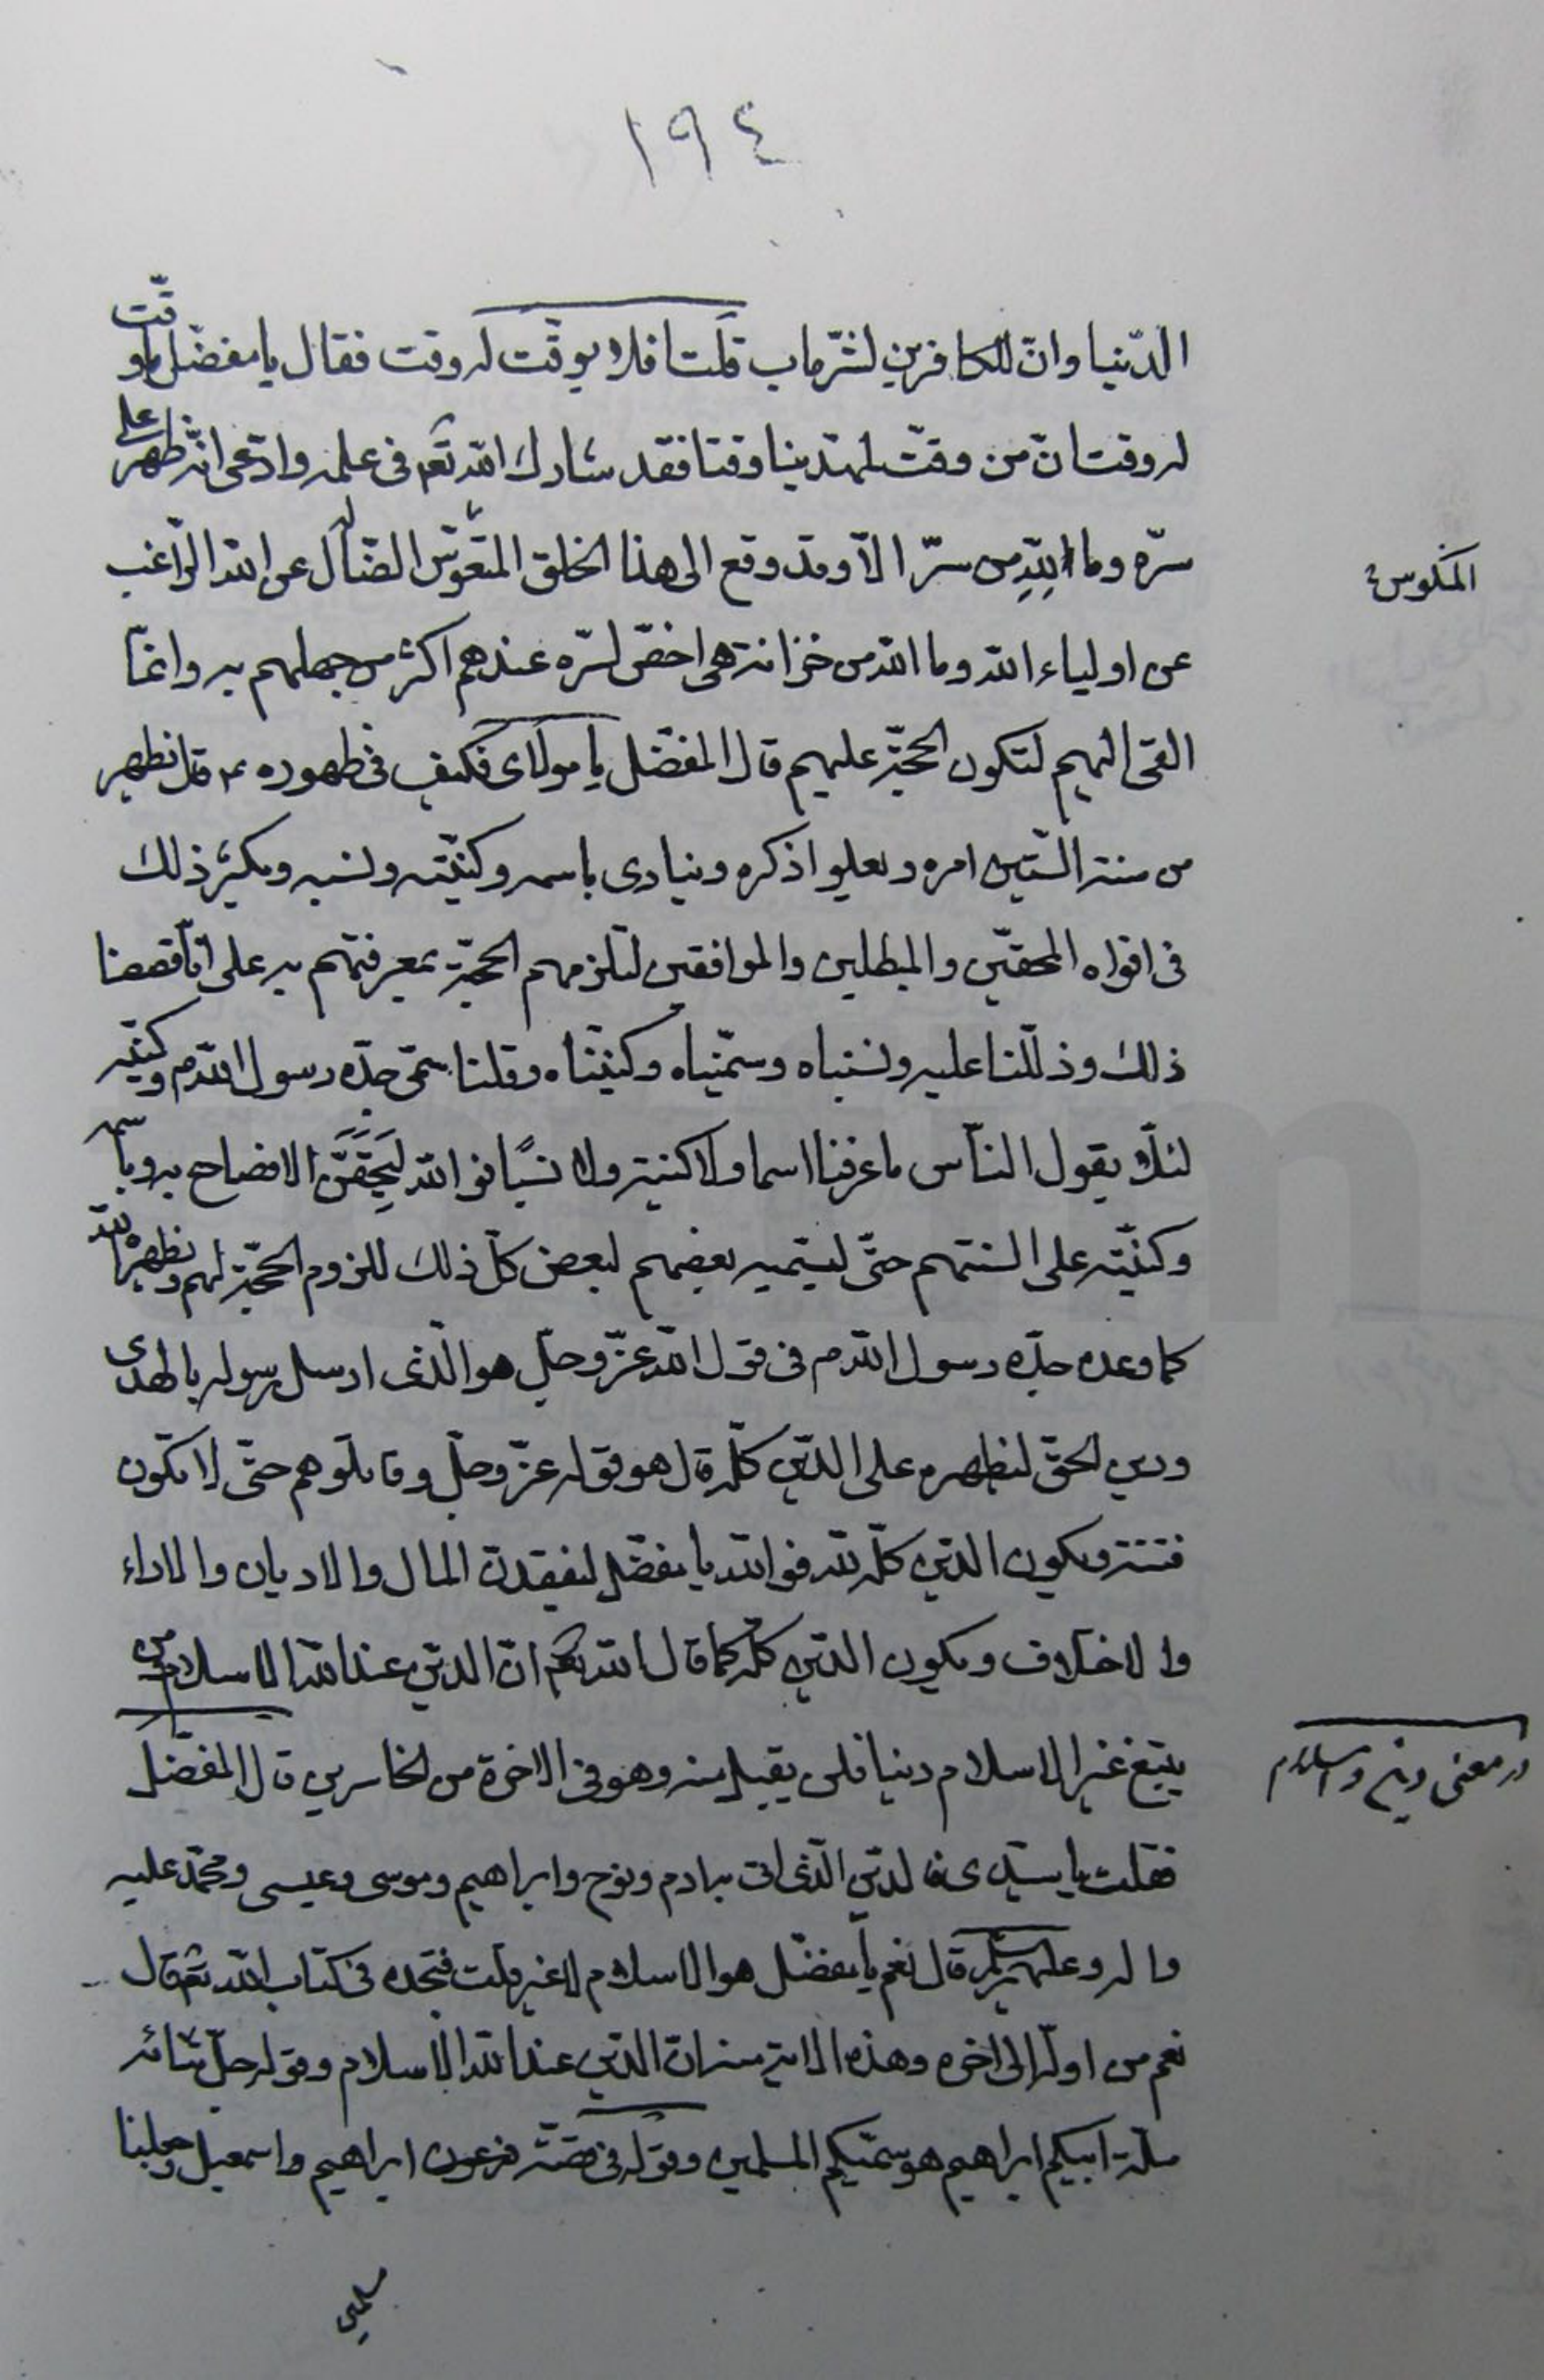 ١٩٤
الدّنيا وانّ للكافرين لشرّ ماب قلت افلا يوقّت له وقت فقال يا مفضّل ما وقّت
له وقت انّ من وقّت لمهدينا وقتا فقد شارك الله تعم فى علمه وادّعى انّه ظهر على
سرّه وما لله من سرّ الّا وقد وقع الى هذا الخلق المتعوّس الضّال عن الله الرّاغب
المنكوس
عن اولياء الله وما الله من خزانة هى اخفّ لسرّه عندهم اكثر من جهلهم به وانّما
القى اليهم لتكون الحجّة عليهم قال المفضّل يا مولاى فكيف فى ظهوره ع قال يظهر
من سنة السّتين امره ويعلوا ذكره وينادى باسمه وكنيّته ونسبه ويكثر ذلك
فى افواه المحقّين والمبطلين والموافقين لتلزمهم الحجّة بمعرفتهم به على انّا قصصنا
ذلك ودللنا عليه ونسبناه وسمّيناه وكنيّناه وقلنا سمّى جدّه رسول الله ص وكنيّه
لئلّا يقول النّاس ما عرفنا اسما ولا كنية ولا نسبًا فو الله ليحقّقنّ الافصاح به وباسمه
وكنيّته على السنتهم حتّى ليسمّيه بعضهم لبعض كلّ ذلك للزوم الحجّة لهم ويظهره الله
كما وعده جدّه رسول الله ص فى قول الله عزّ وجلّ هو الّذى ارسل رسوله بالهدى
ودين الحقّ ليظهره على الدّين كلّه قال هو قوله عزّ وجلّ وقاتلوهم حتّى لا تكون
فتنة ويكون الدّين كلّه لله فو الله يا مفضّل ليفقدنّ المال والاديان والاراء
والاختلاف ويكون الدّين كلّه كما قال الله تعم انّ الدّين عند الله الاسلام ومن
يبتغ غير الاسلام دينا فلن يقبل منه وهو فى الاخرة من الخاسرين قال المفضّل
در معنى دين واسلام
فقلت يا سيّدى فالدّين الّذى اتى به ادم ونوح وابراهيم وموسى وعيسى ومحمّد عليه
واله وعليهم قال نعم يا مفضّل هو الاسلام لا غير قلت فتجده فى كتاب الله تعم قال
نعم من اوّله الى اخره وهذه الاية منه انّ الدّين عند الله الاسلام وقوله جلّ ثنائه
ملّة ابيكم ابراهيم هو سمّيكم المسلمين وقوله فى قصّة فرعون ابراهيم واسمعيل وجعلنا
مسلمين